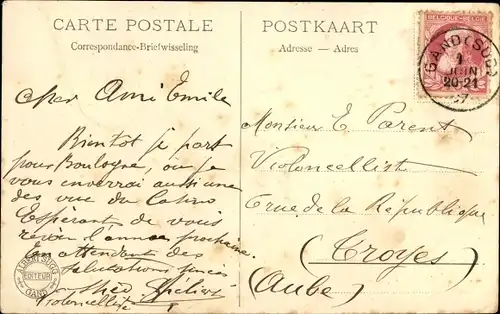 CARTE POSTALE
Correspondance-Briefwisseling
Cher Ami Emile
Bientot je part
pour Boulogne, ou je
vous enverrai aussi une
des vue du Casino
Espérant de vous
revoir l'année prochaine.
En attendant des
salutations
Violoncelliste
ALBERT SUGG
EDITEUR
GAND
POSTKAART
Adresse - Adres
BELGIQUE-BELGIË
GAND (SUD)
1
JUIN
20-21
07
Monsieur E. Parent
Violoncelliste
rue de la République
(Troyes)
(Aube)